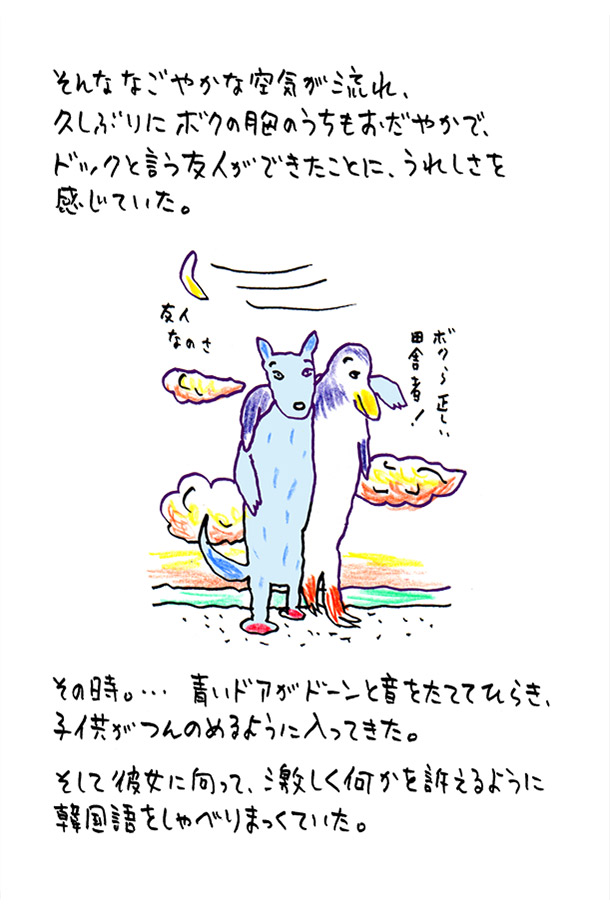 そんななごやかな空気が流れ、
久しぶりにボクの胸のうちもおだやかで、
ドックと言う友人ができたことに、うれしさを
感じていた。
友人
なのさ
ボクら正しい
田舎者！
その時。… 青いドアがドーンと音をたててひらき、
子供がつんのめるように入ってきた。
そして彼女に向って、激しく何かを訴えるように
韓国語をしゃべりまっくていた。